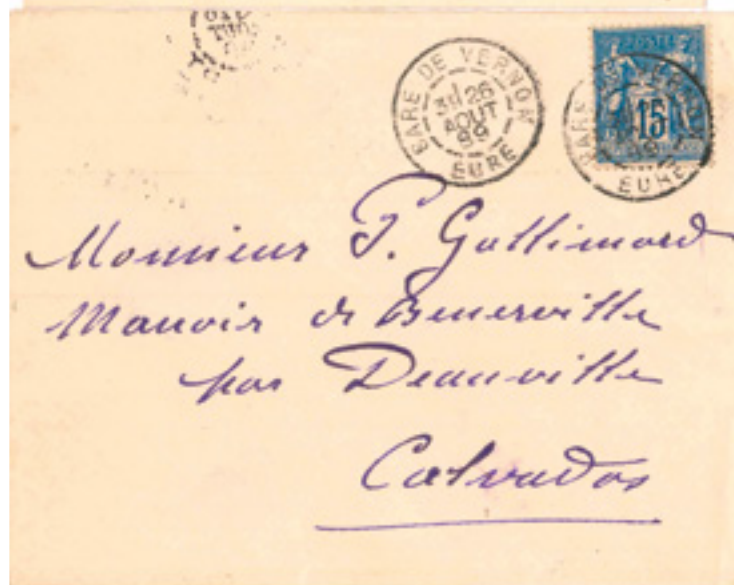 GARE DE VERNON
3E 26
AOUT
99
EURE
POSTE
15
GARE DE VERNON
EURE
AOUT
Monsieur P. Gallimard
Manoir de Benerville
par Deauville
Calvados